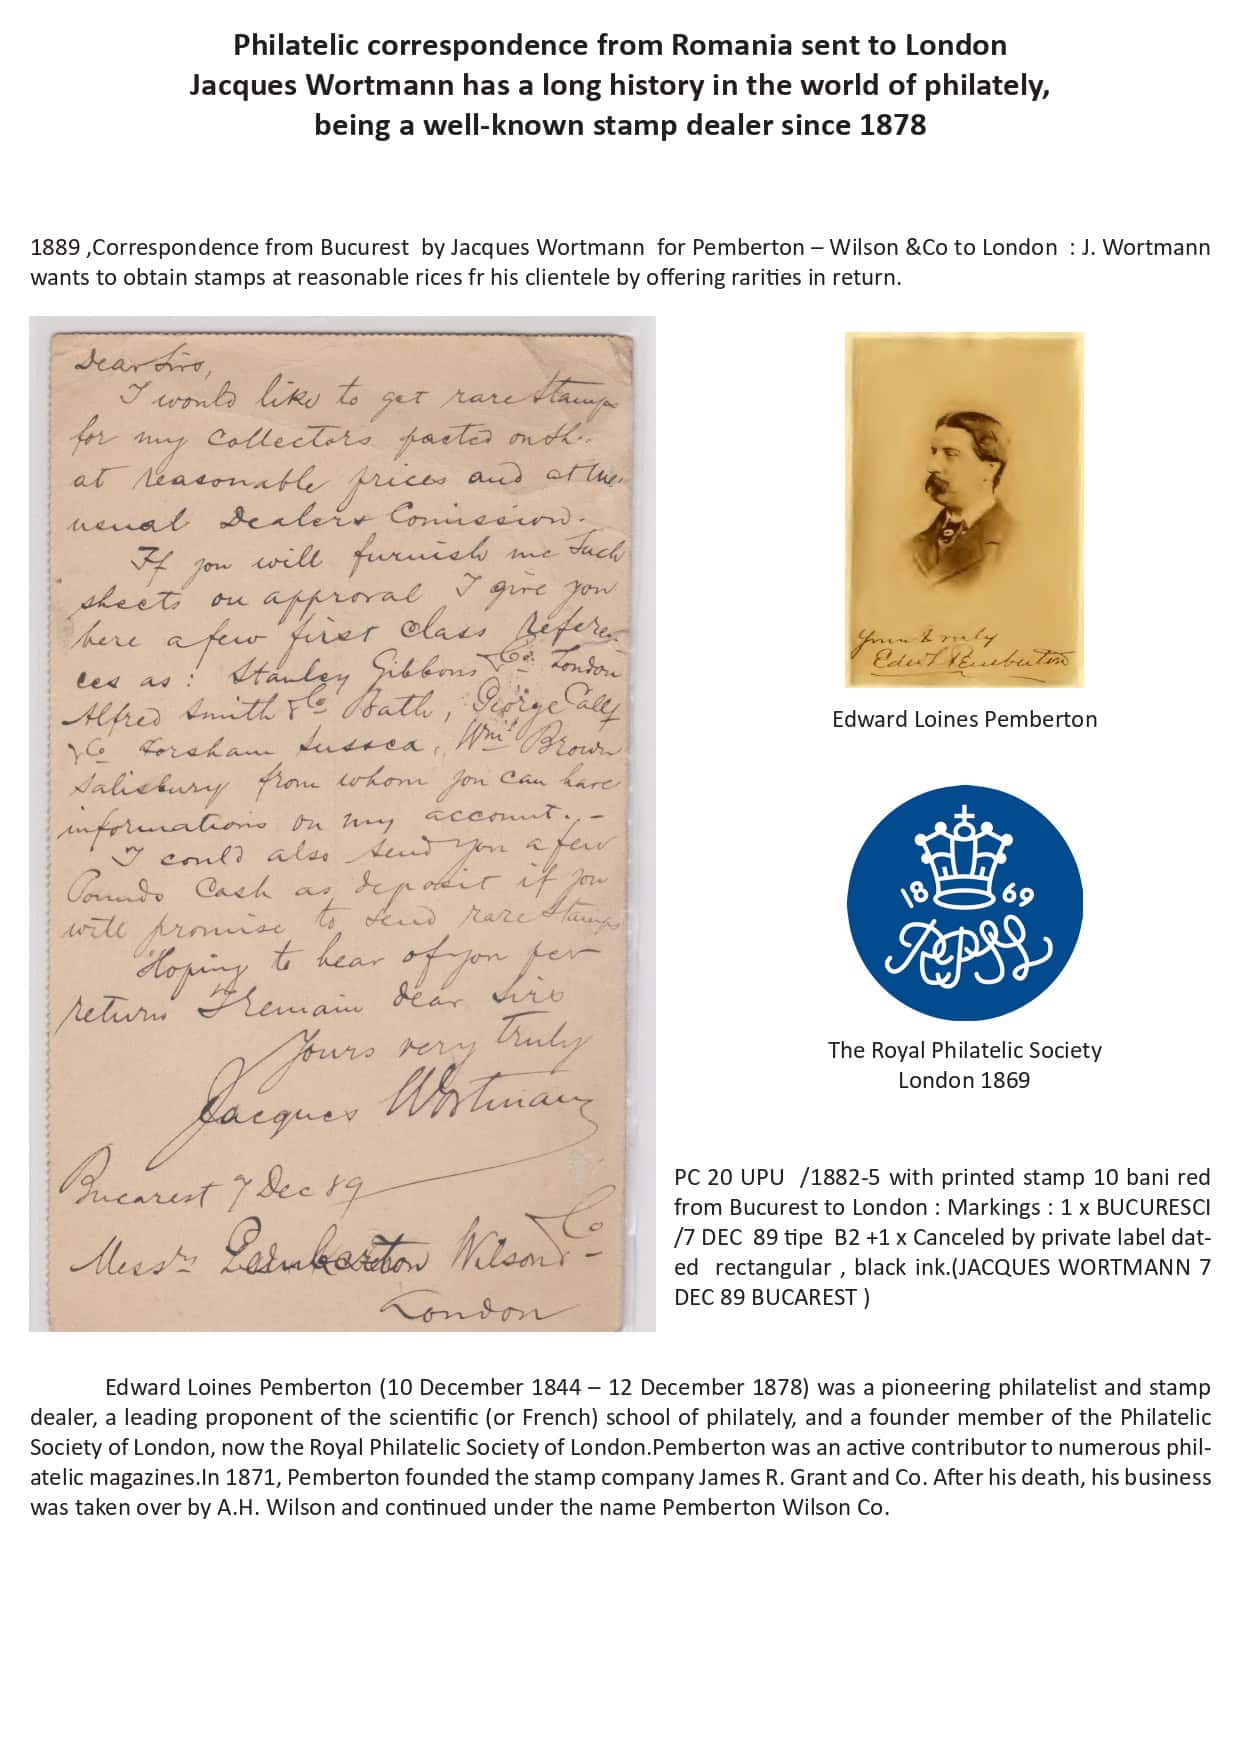 Philatelic correspondence from Romania sent to London
Jacques Wortmann has a long history in the world of philately,
being a well-known stamp dealer since 1878
1889 ,Correspondence from Bucurest by Jacques Wortmann for Pemberton – Wilson &Co to London : J. Wortmann
wants to obtain stamps at reasonable rices fr his clientele by offering rarities in return.
Dear Sirs,
I would like to get rare Stamps
for my Collectors on
at reasonable prices and at the
usual Dealers Comission.
If you will furnish me Such
sheets on approval I give you
here a few first class Referen
ces as: Stanley Gibbons & Co London
Alfred Smith & Co Bath, George Calf
& Co Horsham Sussex, Wm Brown
Salisbury from whom you can have
informations on my account. –
I could also send you a few
Pounds Cash as deposit if you
will promise to send rare Stamps
Hoping to hear of you per
return I remain dear Sirs
Yours very truly
Jacques Wortmann
Bucarest 7 Dec 89
Messrs Pemberton Wilson & Co
London
Yours truly
Edwd L Pemberton
Edward Loines Pemberton
18 69
RPSL
The Royal Philatelic Society
London 1869
PC 20 UPU /1882-5 with printed stamp 10 bani red
from Bucurest to London : Markings : 1 x BUCURESCI
/7 DEC 89 tipe B2 +1 x Canceled by private label dat-
ed rectangular , black ink.(JACQUES WORTMANN 7
DEC 89 BUCAREST )
Edward Loines Pemberton (10 December 1844 – 12 December 1878) was a pioneering philatelist and stamp
dealer, a leading proponent of the scientific (or French) school of philately, and a founder member of the Philatelic
Society of London, now the Royal Philatelic Society of London.Pemberton was an active contributor to numerous phil-
atelic magazines.In 1871, Pemberton founded the stamp company James R. Grant and Co. After his death, his business
was taken over by A.H. Wilson and continued under the name Pemberton Wilson Co.